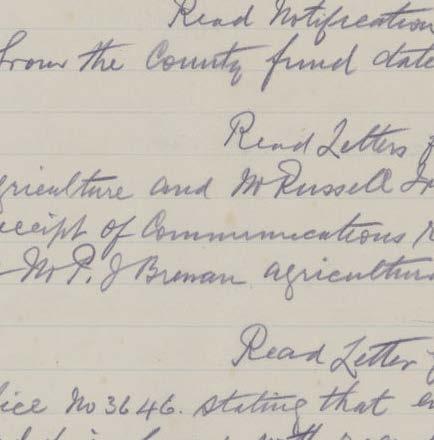 Read Notification
from the County fund date
Read Letters f
griculture and Mr Russell
eceipt of Communications
Mr P. J Brenan agricultur
Read Letter f
fice No 3646. stating that